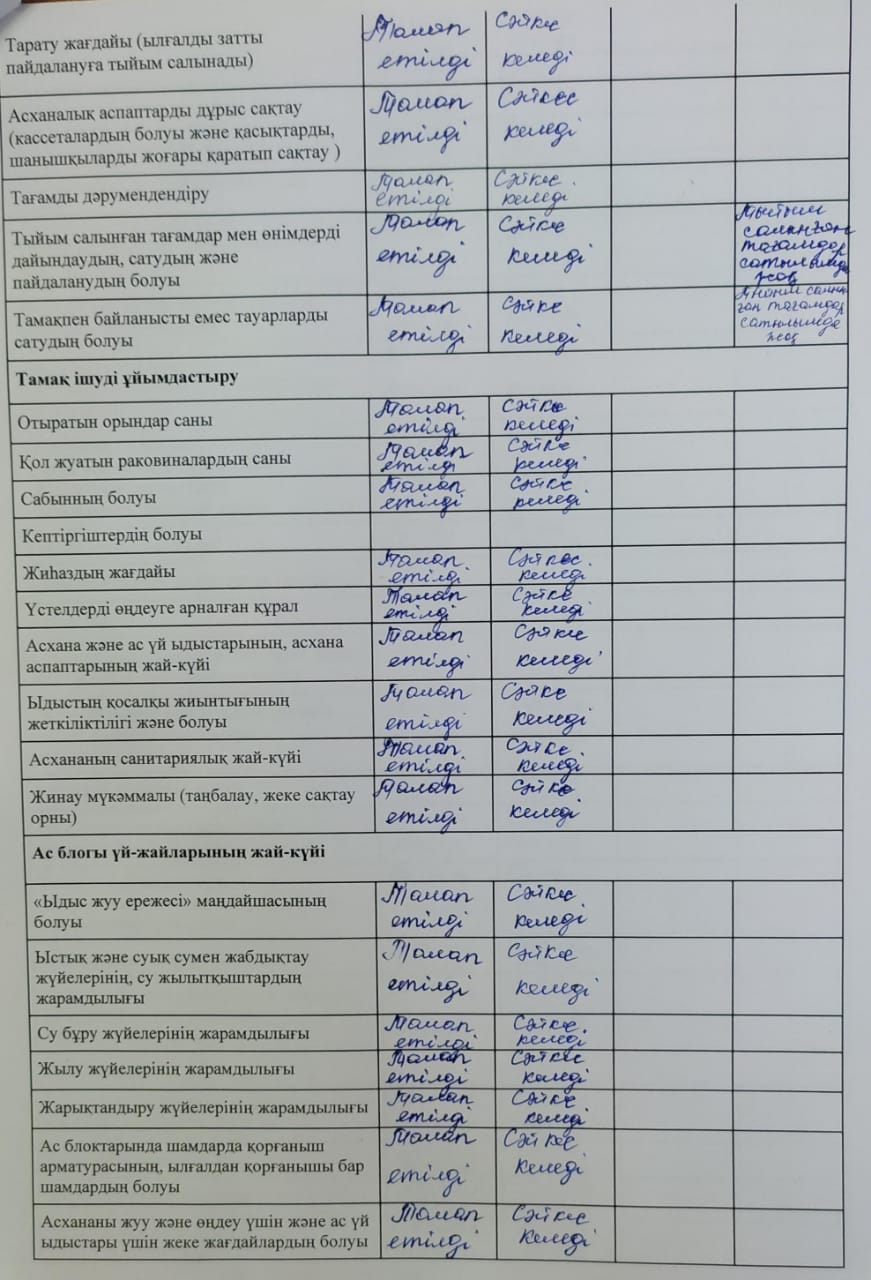 Тарату жағдайы (ылғалды затты Талап сәйке
пайдалануға тыйым салынады) етілді келеді
Асханалық аспаптарды дұрыс сақтау Талап Сәйкес
(кассеталардың болуы және қасықтарды, етілді келеді
шанышқыларды жоғары қаратып сақтау )
Тағамды дәрумендендіру Талап Сәйке
етілді келеді
Тыйым салынған тағамдар мен өнімдерді Талап Сәйке Тыйым
дайындаудың, сатудың және етілді келеді салынған
пайдаланудың болуы тағамдар
сатылымда
жоқ
Тамақпен байланысты емес тауарларды Талап сәйке салын
сатудың болуы етілді келеді ған тағамдар
сатылымда
жоқ
Тамақ ішуді ұйымдастыру
Отыратын орындар саны Талап сәйке
етілді келеді
Қол жуатын раковиналардың саны Талап сәйке
етілді келеді
Сабынның болуы Талап сәйке
етілді келеді
Кептіргіштердің болуы
Жиһаздың жағдайы Талап Сәйкес
етілді келеді
Үстелдерді өңдеуге арналған құрал Талап Сәйке
етілді келеді
Асхана және ас үй ыдыстарының, асхана Талап Сәйке
аспаптарының жай-күйі етілді келеді
Ыдыстың қосалқы жиынтығының Талап Сәйке
жеткіліктілігі және болуы етілді келеді
Асхананың санитариялық жай-күйі Талап Сәйке
етілді келеді
Жинау мүкәммалы (таңбалау, жеке сақтау Талап Сәйке
орны) етілді келеді
Ас блогы үй-жайларының жай-күйі
«Ыдыс жуу ережесі» маңдайшасының Талап Сәйке
болуы етілді келеді
Ыстық және суық сумен жабдықтау Талап Сәйке
жүйелерінің, су жылытқыштардың етілді келеді
жарамдылығы
Су бұру жүйелерінің жарамдылығы Талап Сәйке
етілді келеді
Жылу жүйелерінің жарамдылығы Талап Сәйкес
етілді келеді
Жарықтандыру жүйелерінің жарамдылығы Талап Сәйке
етілді келеді
Ас блоктарында шамдарда қорғаныш Талап Сәйкес
арматурасының, ылғалдан қорғанышы бар етілді келеді
шамдардың болуы
Асхананы жуу және өңдеу үшін және ас үй Талап Сәйке
ыдыстары үшін жеке жағдайлардың болуы етілді келеді